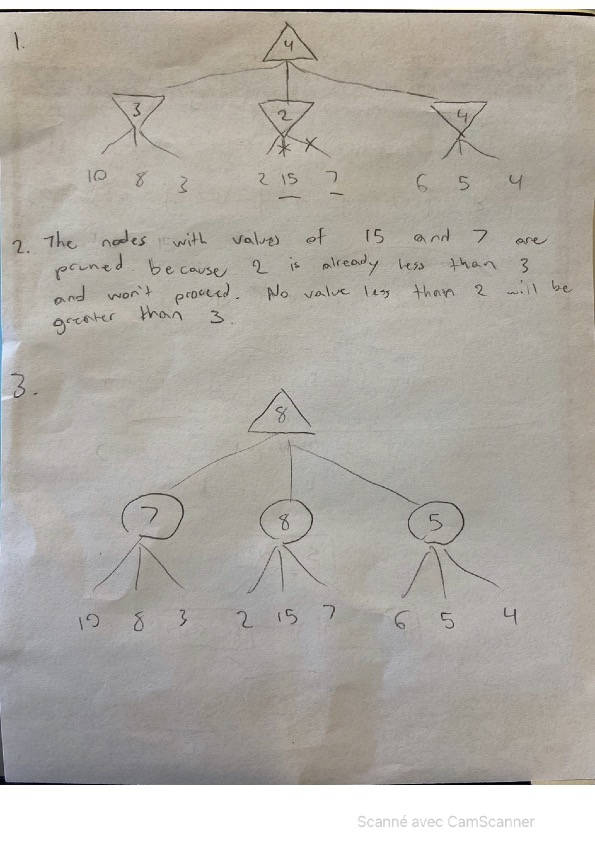 1.
4
3 2 4
10 8 3 2 15 7 6 5 4
2. The nodes with values of 15 and 7 are
pruned because 2 is already less than 3
and won't proceed. No value less than 2 will be
greater than 3.
3.
8
7 8 5
10 8 3 2 15 7 6 5 4
Scanné avec CamScanner